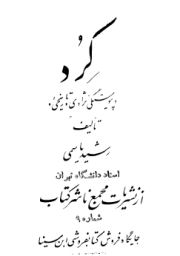 کُرد
و
پیوستگی نژادی و تاریخی او
تألیف
رشید یاسمی
استاد دانشگاه تهران
از نشریات مجمع ناشر کتاب
شماره ۹
جایگاه فروش کتابفروشی ابن سینا